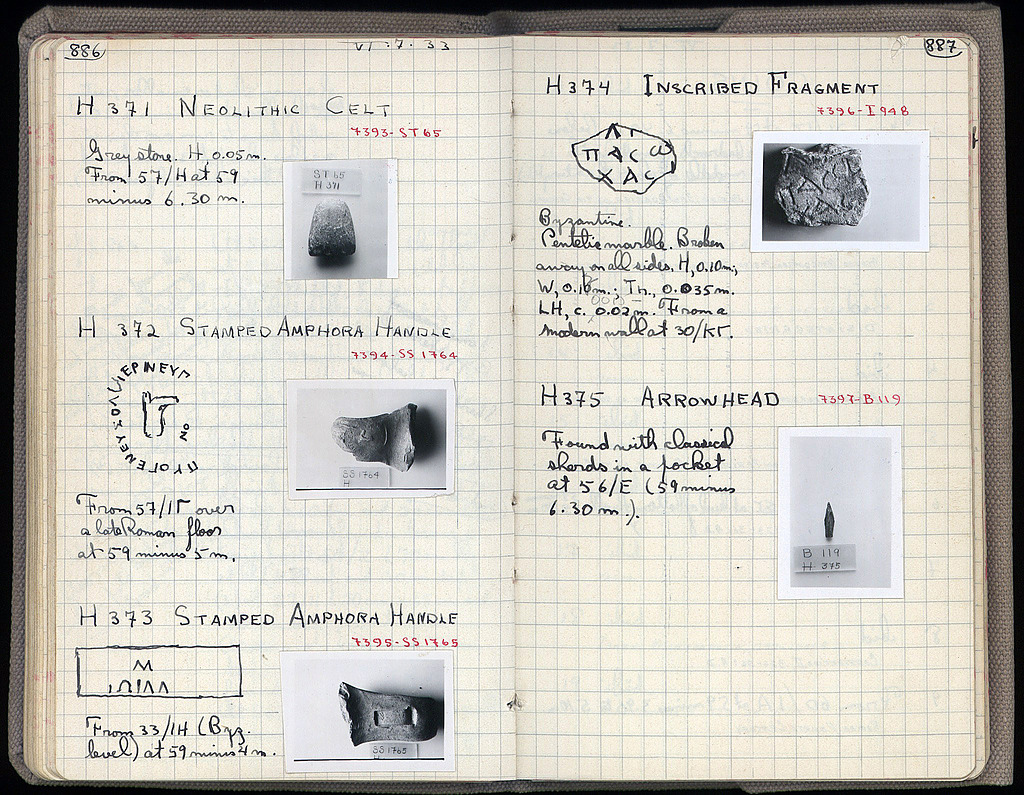 886
VI.7.33
H 371 NEOLITHIC CELT
7393-ST 65
Grey stone. H, 0.05 m.
From 57/H at 59
minus 6.30 m.
ST 65
H 371
H 372 STAMPED AMPHORA HANDLE
7394-SS 1764
From 57/ΙΓ over
a late Roman floor
at 59 minus 5 m.
SS 1764
H
H 373 STAMPED AMPHORA HANDLE
7395-SS 1765
From 33/ΙΗ (Byz.
level) at 59 minus 4 m.
SS 1765
H
887
H 374 INSCRIBED FRAGMENT
7396-I 948
ΠΑCΑ
ΧΑC
Byzantine.
Pentelic marble. Broken
away on all sides. H, 0.10 m;
W, 0.1 m.; Th., 0.035 m.
LH, c. 0.02 m. From a
modern wall at 30/ΚΓ.
H 375 ARROWHEAD
7397-B 119
Found with classical
sherds in a pocket
at 56/E (59 minus
6.30 m.).
B 119
H 375